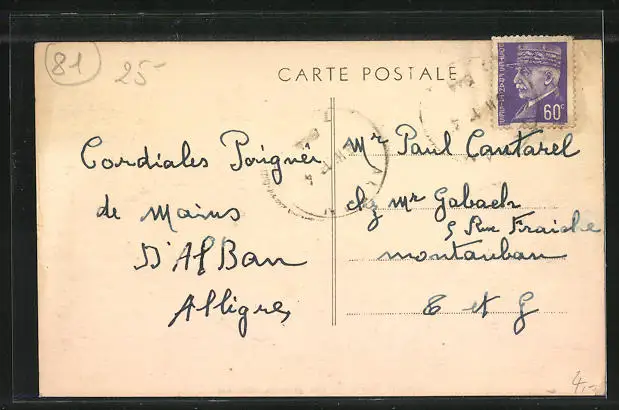 81
25-
CARTE POSTALE
60c
Cordiales Poignés
de Mains
D'Al Ban
Alligre,
Mr Paul Cantarel
chz Mr Gabach
5 Rue Fraiche
montauban
T et G
4,-